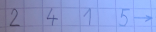 2 4 1 5 →